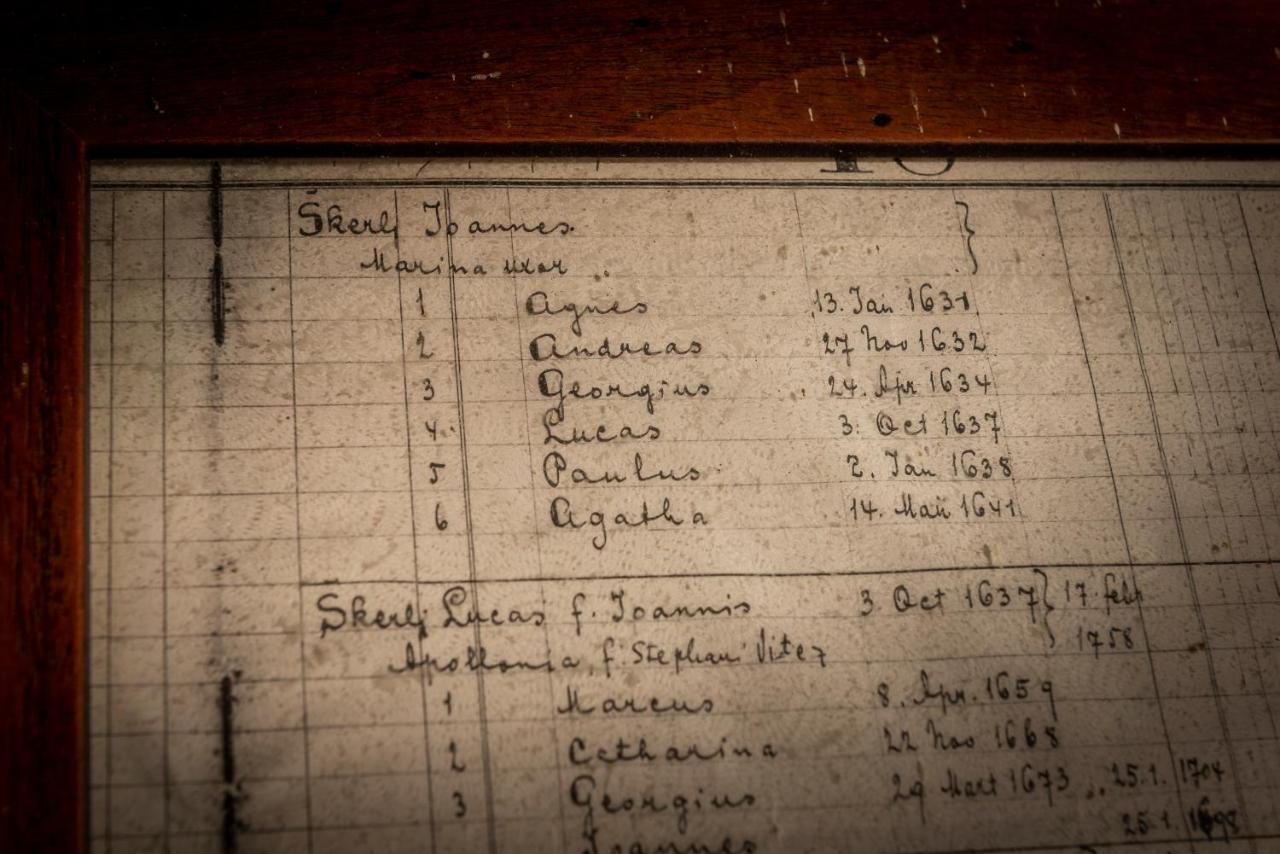 Škerlj Ioannes.
Marina uxor
1 Agnes 13. Ian 1631
2 Andreas 27 Nov 1632
3 Georgius 24. Apr 1634
4. Lucas 3. Oct 1637
5 Paulus 2. Ian 1638
6 Agatha 14. Maii 1641
Škerlj Lucas f. Ioannis 3 Oct 1637 } 17. febr
Apollonia f. Stephani Vitez 1758
1 Marcus 8. Apr. 1659
2 Catharina 22 Nov 1668
3 Georgius 29 Mart 1673 25.1. 1704
Ioannes 25.1. 1698